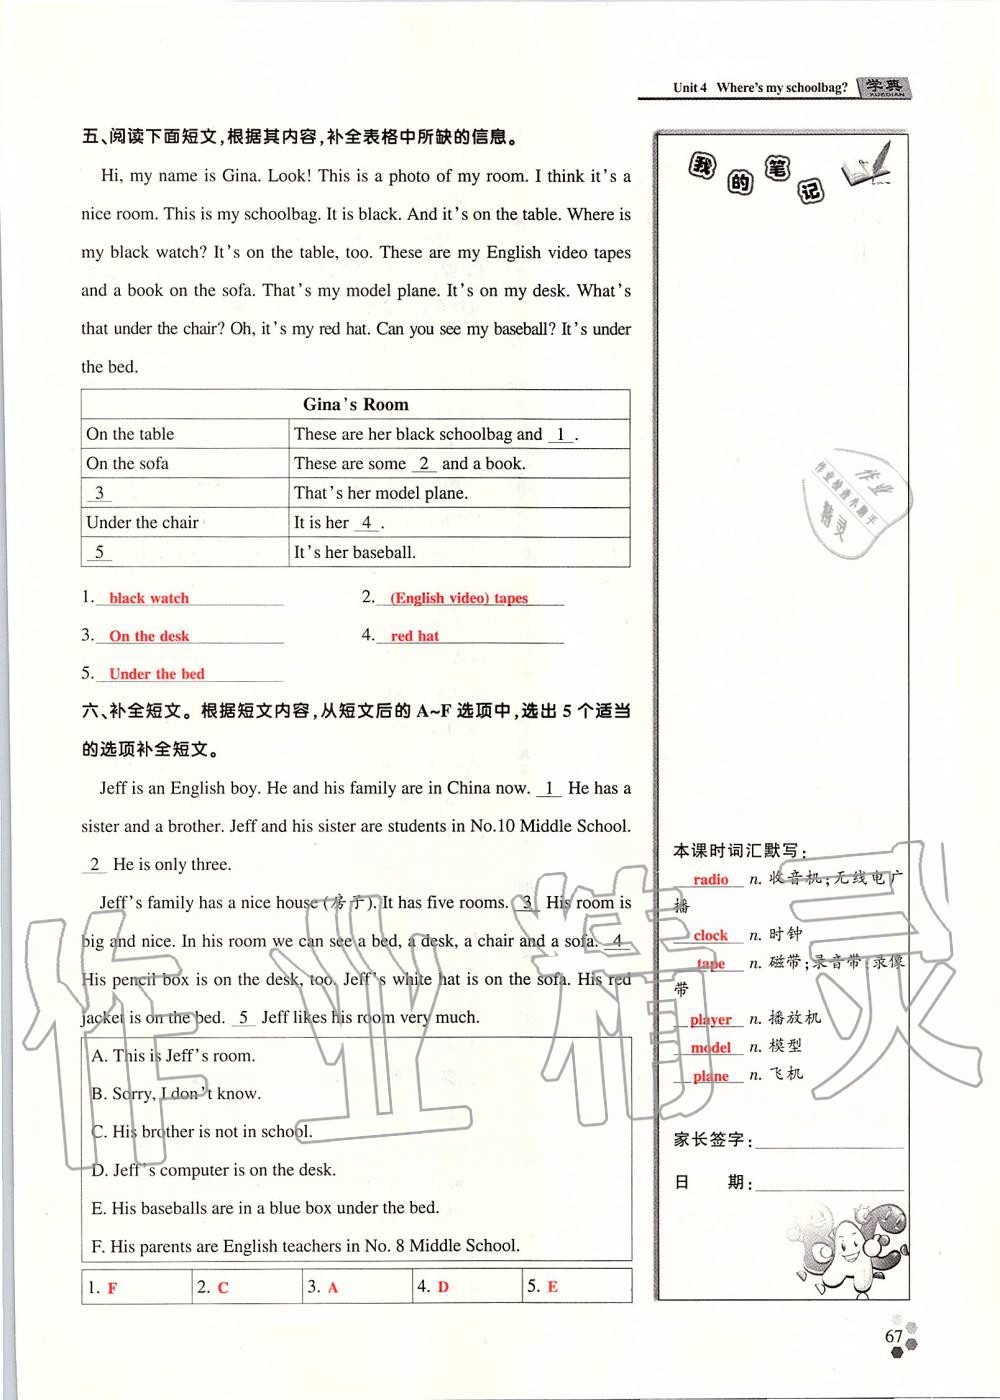 Unit 4 Where's my schoolbag? 学典
XUEDIAN
五、阅读下面短文,根据其内容,补全表格中所缺的信息。
Hi, my name is Gina. Look! This is a photo of my room. I think it's a
nice room. This is my schoolbag. It is black. And it's on the table. Where is
my black watch? It's on the table, too. These are my English video tapes
and a book on the sofa. That's my model plane. It's on my desk. What's
that under the chair? Oh, it's my red hat. Can you see my baseball? It's under
the bed.
Gina's Room
On the table These are her black schoolbag and 1 .
On the sofa These are some 2 and a book.
3 That's her model plane.
Under the chair It is her 4 .
5 It's her baseball.
1. black watch 2. (English video) tapes
3. On the desk 4. red hat
5. Under the bed
六、补全短文。根据短文内容,从短文后的 A~F 选项中,选出 5 个适当
的选项补全短文。
Jeff is an English boy. He and his family are in China now. 1 He has a
sister and a brother. Jeff and his sister are students in No.10 Middle School.
2 He is only three.
Jeff's family has a nice house(房子). It has five rooms. 3 His room is
big and nice. In his room we can see a bed, a desk, a chair and a sofa. 4
His pencil box is on the desk, too. Jeff's white hat is on the sofa. His red
jacket is on the bed. 5 Jeff likes his room very much.
A. This is Jeff's room.
B. Sorry, I don't know.
C. His brother is not in school.
D. Jeff's computer is on the desk.
E. His baseballs are in a blue box under the bed.
F. His parents are English teachers in No. 8 Middle School.
1. F 2. C 3. A 4. D 5. E
我的笔记
作业
作业检查小助手
精灵
本课时词汇默写:
radio n. 收音机;无线电广
播
clock n. 时钟
tape n. 磁带;录音带;录像
带
player n. 播放机
model n. 模型
plane n. 飞机
家长签字:
日 期:
67
作业精灵